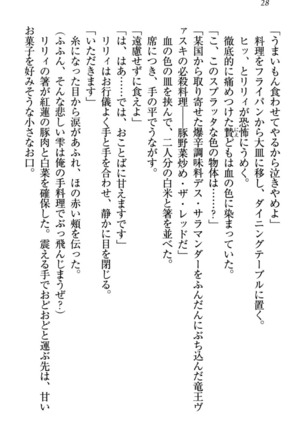 28
「うまいもん食わせてやるから泣きやめよ」
料理をフライパンから大皿に移し、ダイニングテーブルに置く。
ヒッ、とリリィが恐怖にうめく。
徹底的に痛めつけた贄どもは血の色に染まっていた。
「こ、このスプラッタな色の物体は……？」
「某国から取り寄せた爆辛調味料デス・サラマンダーをふんだんにぶち込んだ竜王ヴ
ァスキの必殺料理――豚野菜炒め・ザ・レッドだ」
血の色の皿を挟んで、二人分の白米と箸を並べた。
席につき、手の平でうながす。
「遠慮せずに食えよ」
「は、はあ……では、おことばに甘えまして」
リリィはお行儀よく手と手を合わせ、静かに目を閉じる。
「いただきます」
糸になった目から涙があふれ、ほの赤い頬を伝った。
（ふふん、そんな悲しい雫は俺の手料理でぶっ飛んじまうぜ？）
リリィの箸が紅蓮の豚肉と白菜を確保した。震える手でおどおどと運ぶ先は、甘い
お菓子を好みそうな小さなお口。